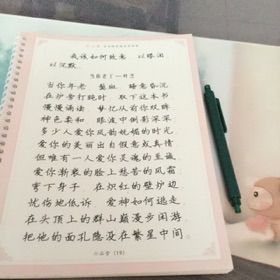 我该如何致意 以眼泪
以沉默
当你老了一叶芝
当你年老 鬓斑 睡意昏沉
在炉旁打盹时 取下这本书
慢慢诵读 梦忆从前你双眸
神色柔和 眼波中倒影深深
多少人爱你风韵妩媚的时光
爱你的美丽出自假意或真情
但唯有一人爱你灵魂的至诚
爱你渐衰的脸上愁苦的风霜
弯下身子 在炽红的壁炉边
忧伤地低诉 爱神如何逃走
在头顶上的群山巅漫步闲游
把他的面孔隐没在繁星中间
(19)